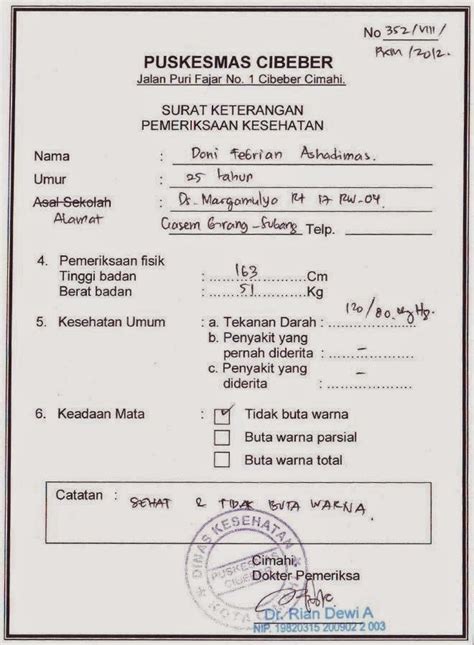 No 352/VIII/
PKM/2012.
PUSKESMAS CIBEBER
Jalan Puri Fajar No. 1 Cibeber Cimahi.
SURAT KETERANGAN
PEMERIKSAAN KESEHATAN
Nama : Doni Febrian Ashadimas.
Umur : 25 tahun
Asal Sekolah : Ds. Margamulya Rt 17 RW-04.
Alamat Ciasem Girang-Subang Telp.
4. Pemeriksaan fisik
Tinggi badan : 163 Cm
Berat badan : 51 Kg
5. Kesehatan Umum : a. Tekanan Darah : 120/80 mmHg.
b. Penyakit yang
pernah diderita : –
c. Penyakit yang
diderita : –
6. Keadaan Mata : ☑ Tidak buta warna
☐ Buta warna parsial
☐ Buta warna total
Catatan : SEHAT & TIDAK BUTA WARNA.
DINAS KESEHATAN
PUSKESMAS
CIBEBER
KOTA
Cimahi,
Dokter Pemeriksa
Dr. Rian Dewi A
NIP. 19820315 200902 2 003